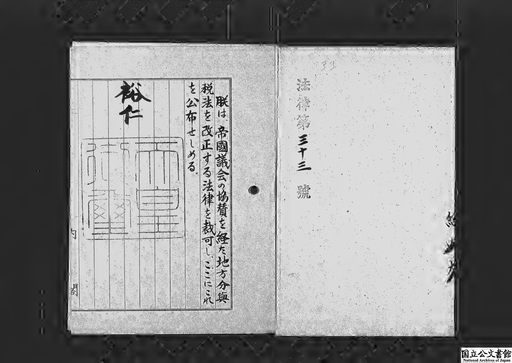 法律第三十三號
朕は、帝國議会の協賛を経た地方分與
税法を改正する法律を裁可し、ここにこれ
を公布せしめる。
裕仁
天皇
御璽
内閣
国立公文書館
National Archives of Japan